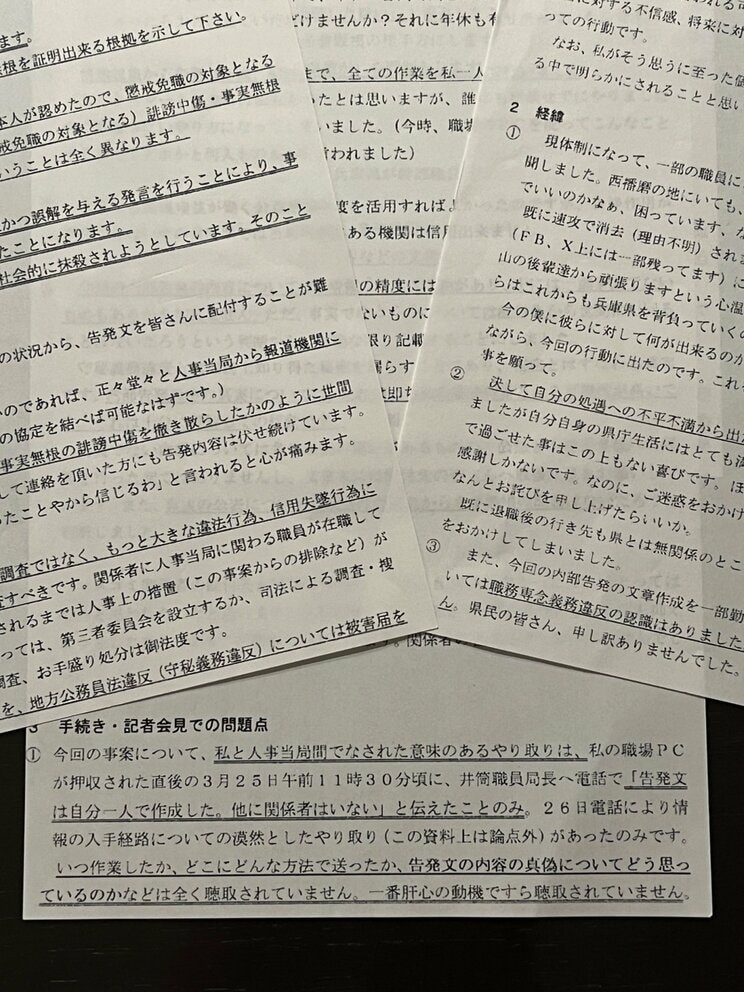 ます。
無根を証明出来る根拠を示して下さい。
本人が認めたので、懲戒免職の対象となる
戒免職の対象となる）誹謗中傷・事実無根
いうことは全く異なります。
かつ誤解を与える発言を行うことにより、事
たことになります。
社会的に抹殺されようとしています。そのこと
の状況から、告発文を皆さんに配付することが難
いのであれば、正々堂々と人事当局から報道機関に
の協定を結べば可能なはずです。）
事実無根の誹謗中傷を撒き散らしたかのように世間
して連絡を頂いた方にも告発内容は伏せ続けています。
ったことやから信じるわ」と言われると心が痛みます。
調査ではなく、もっと大きな違法行為、信用失墜行為に
査すべきです。関係者に人事当局に関わる職員が在職して
されるまでは人事上の措置（この事案からの排除など）が
っては、第三者委員会を設立するか、司法による調査・捜
調査、お手盛り処分は御法度です。
を、地方公務員法違反（守秘義務違反）については被害届を
だけませんか？それに年休も有
まで、全ての作業を私一人
ったとは思いますが、誰
いました。（今時、職場
行われました）
度を活用すればよ
ある機関は信用出来ま
の精度には
ないものに
限り記載
漏らす
は即ち
関係者の
に対する不信感、将来に対
っての行動です。
なお、私がそう思うに至った個
る中で明らかにされることと思い
2　経緯
①　現体制になって、一部の職員に
聞しました。西播磨の地にいても、
でいいのかなぁ、困っています、な
既に速攻で消去（理由不明）されま
（ＦＢ、Ｘ上には一部残ってます）に
山の後輩達から頑張りますという心温
らはこれからも兵庫県を背負っていくの
今の僕に彼らに対して何が出来るのか
ながら、今回の行動に出たのです。これ
事を願って。
②　決して自分の処遇への不平不満から出
ましたが自分自身の県庁生活にはとても満
で過ごせた事はこの上もない喜びです。ほ
感謝しかないです。なのに、ご迷惑をおかけ
なんとお詫びを申し上げたらいいか。
既に退職後の行き先も県とは無関係のとこ
をおかけしてしまいました。
③　また、今回の内部告発の文章作成を一部勤
いては職務専念義務違反の認識はありました
ん。県民の皆さん、申し訳ありませんでした。
3　手続き・記者会見での問題点
①　今回の事案について、私と人事当局間でなされた意味のあるやり取りは、私の職場ＰＣ
が押収された直後の３月２５日午前１１時３０分頃に、井筒職員局長へ電話で「告発文
は自分一人で作成した。他に関係者はいない」と伝えたことのみ。２６日電話により情
報の入手経路についての漠然としたやり取り（この資料上は論点外）があったのみです。
いつ作業したか、どこにどんな方法で送ったか、告発文の内容の真偽についてどう思っ
ているのかなどは全く聴取されていません。一番肝心の動機ですら聴取されていません。